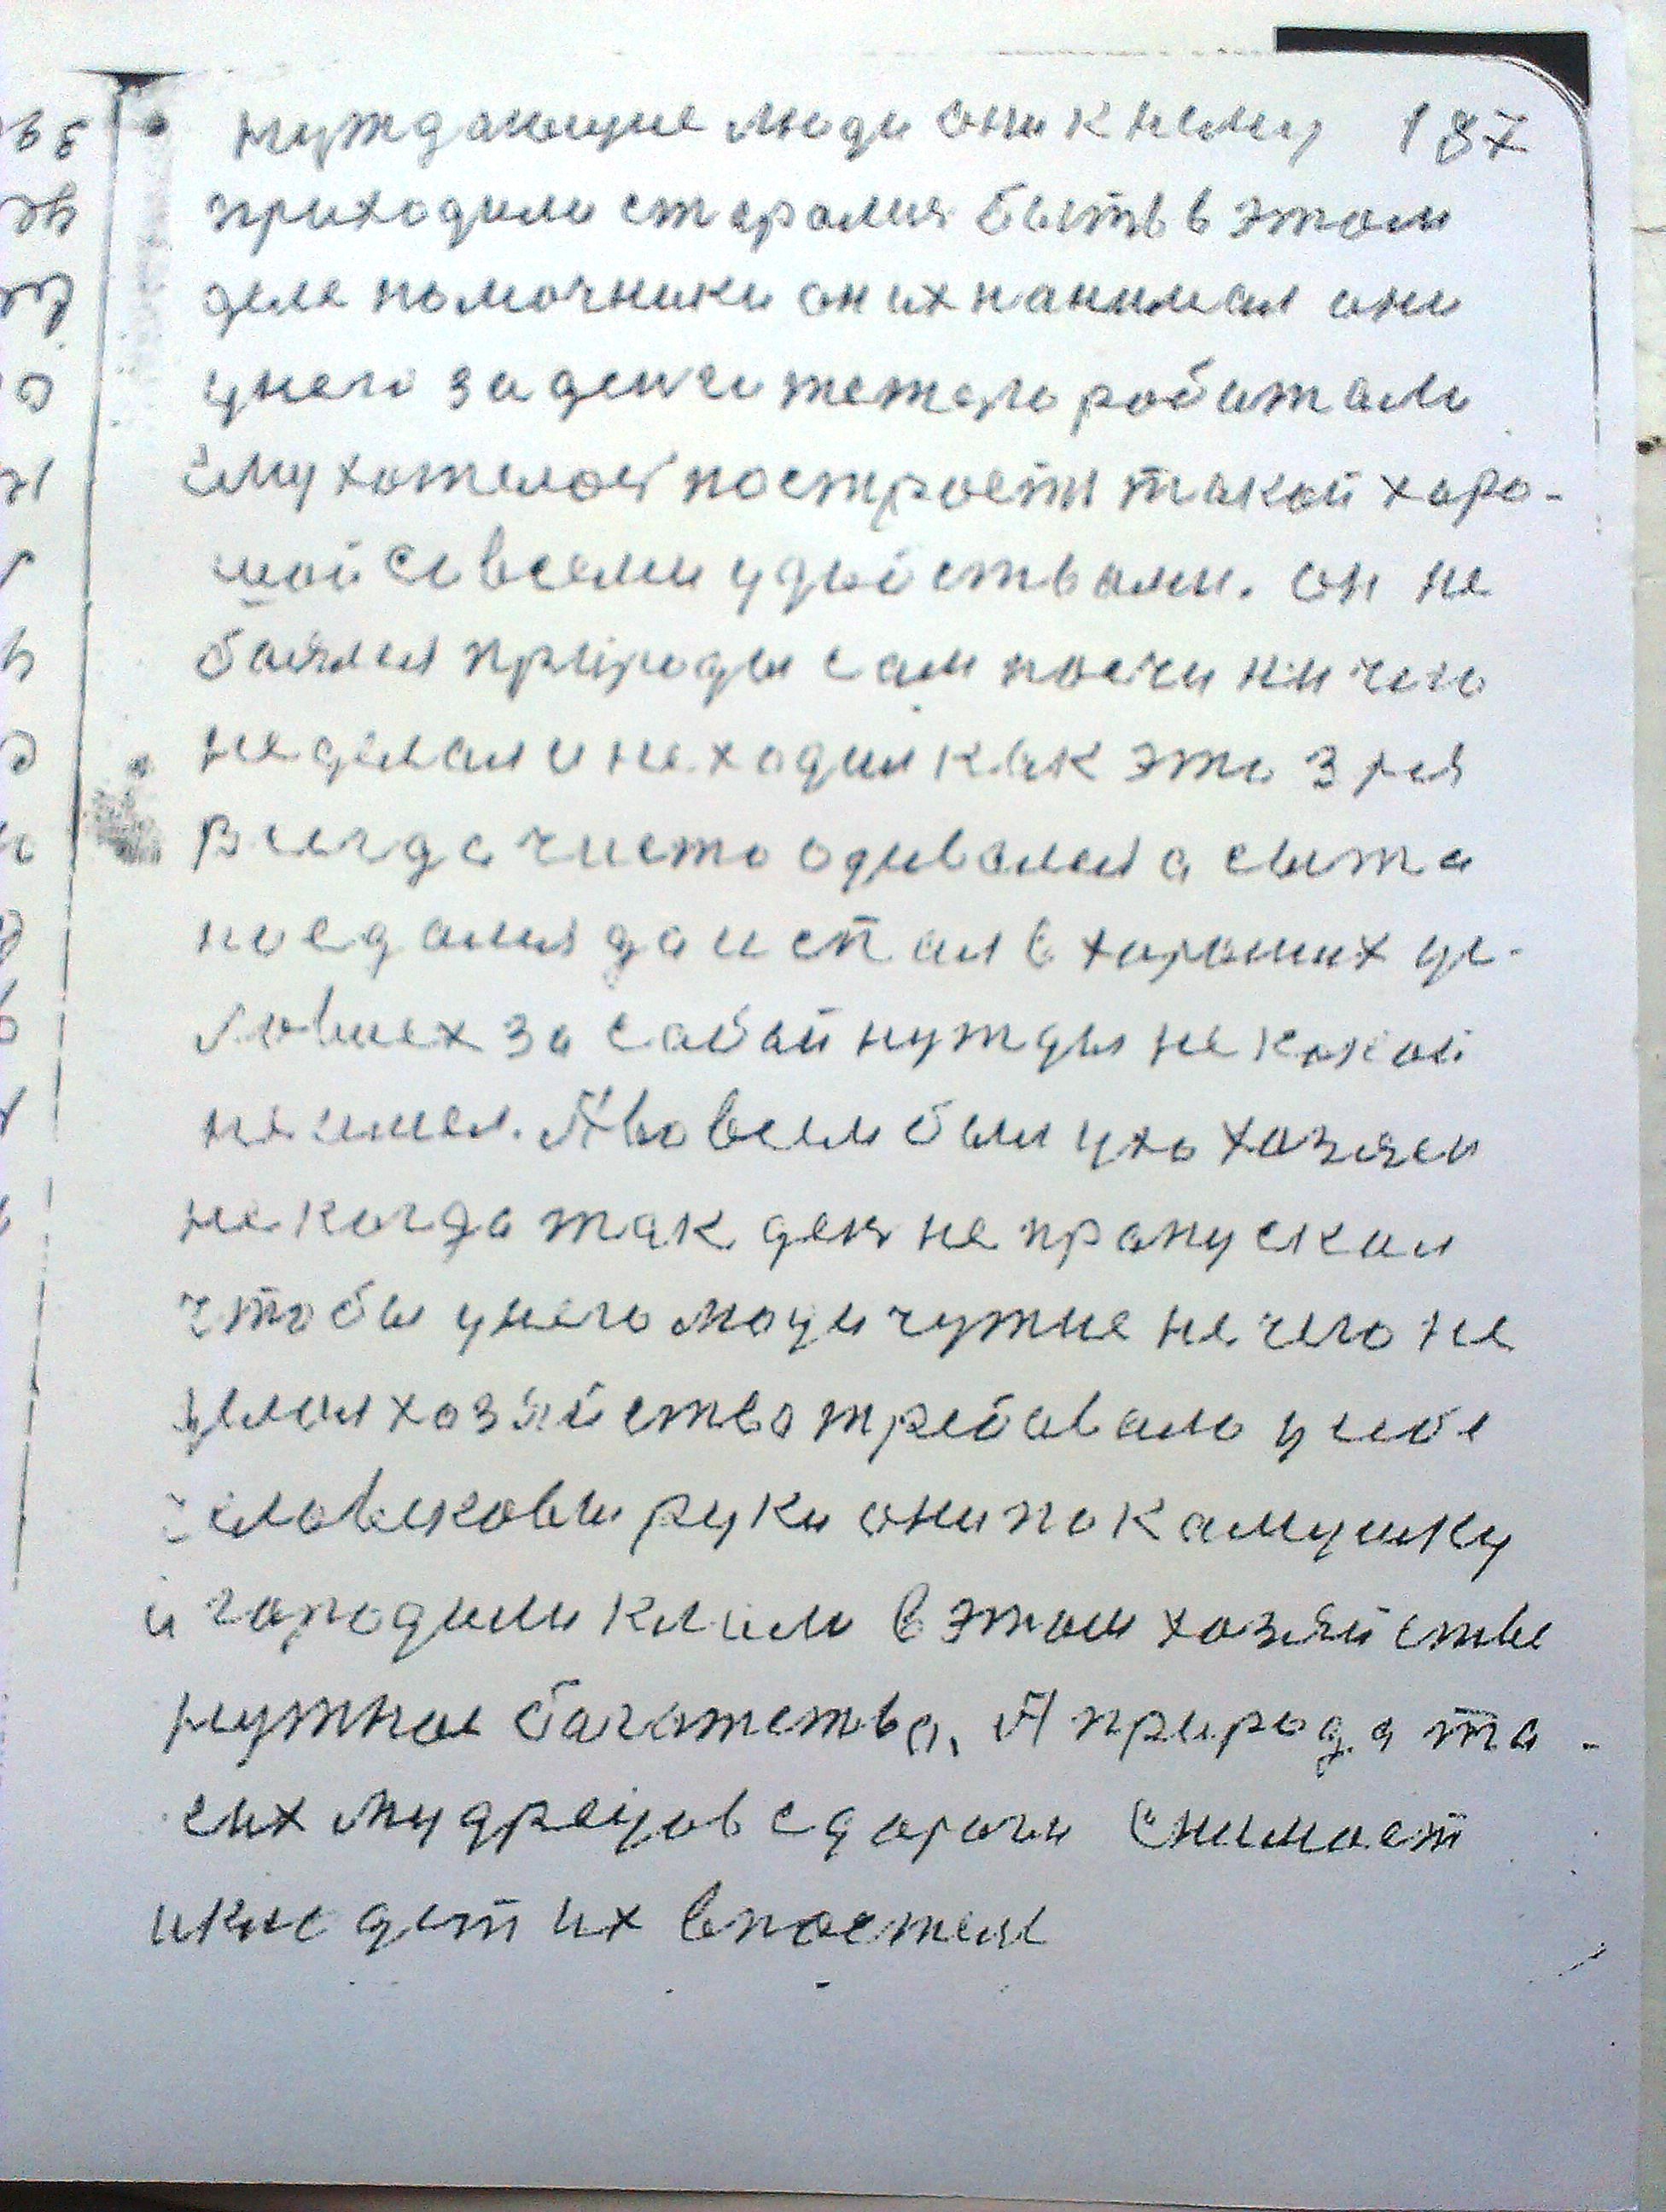 нуждающие люди они к нему 187
приходили старался быть в этом
деле помочники он их нанимал они
у него за денги тежело работали
ему хотелось построеть такой хоро-
шой со всеми удобствами. он не
боялся природы сам почти ни чего
не делал и не ходил как это зря
Всегда чисто одевался а сыта
наедался да и спал в хороших ус-
ловиех за собой нужды не какой
не имел. А во всем был ухо хозяен
не когда так день не пропускал
чтобы у него люди чужие не чего не
делал хозяйство требовало у себе
человековы руки они по камушку
и городили клали в этом хозяйстве
нужное багатства. А природа та-
сих мудрецов с дороги снимает
и кладет их в постель